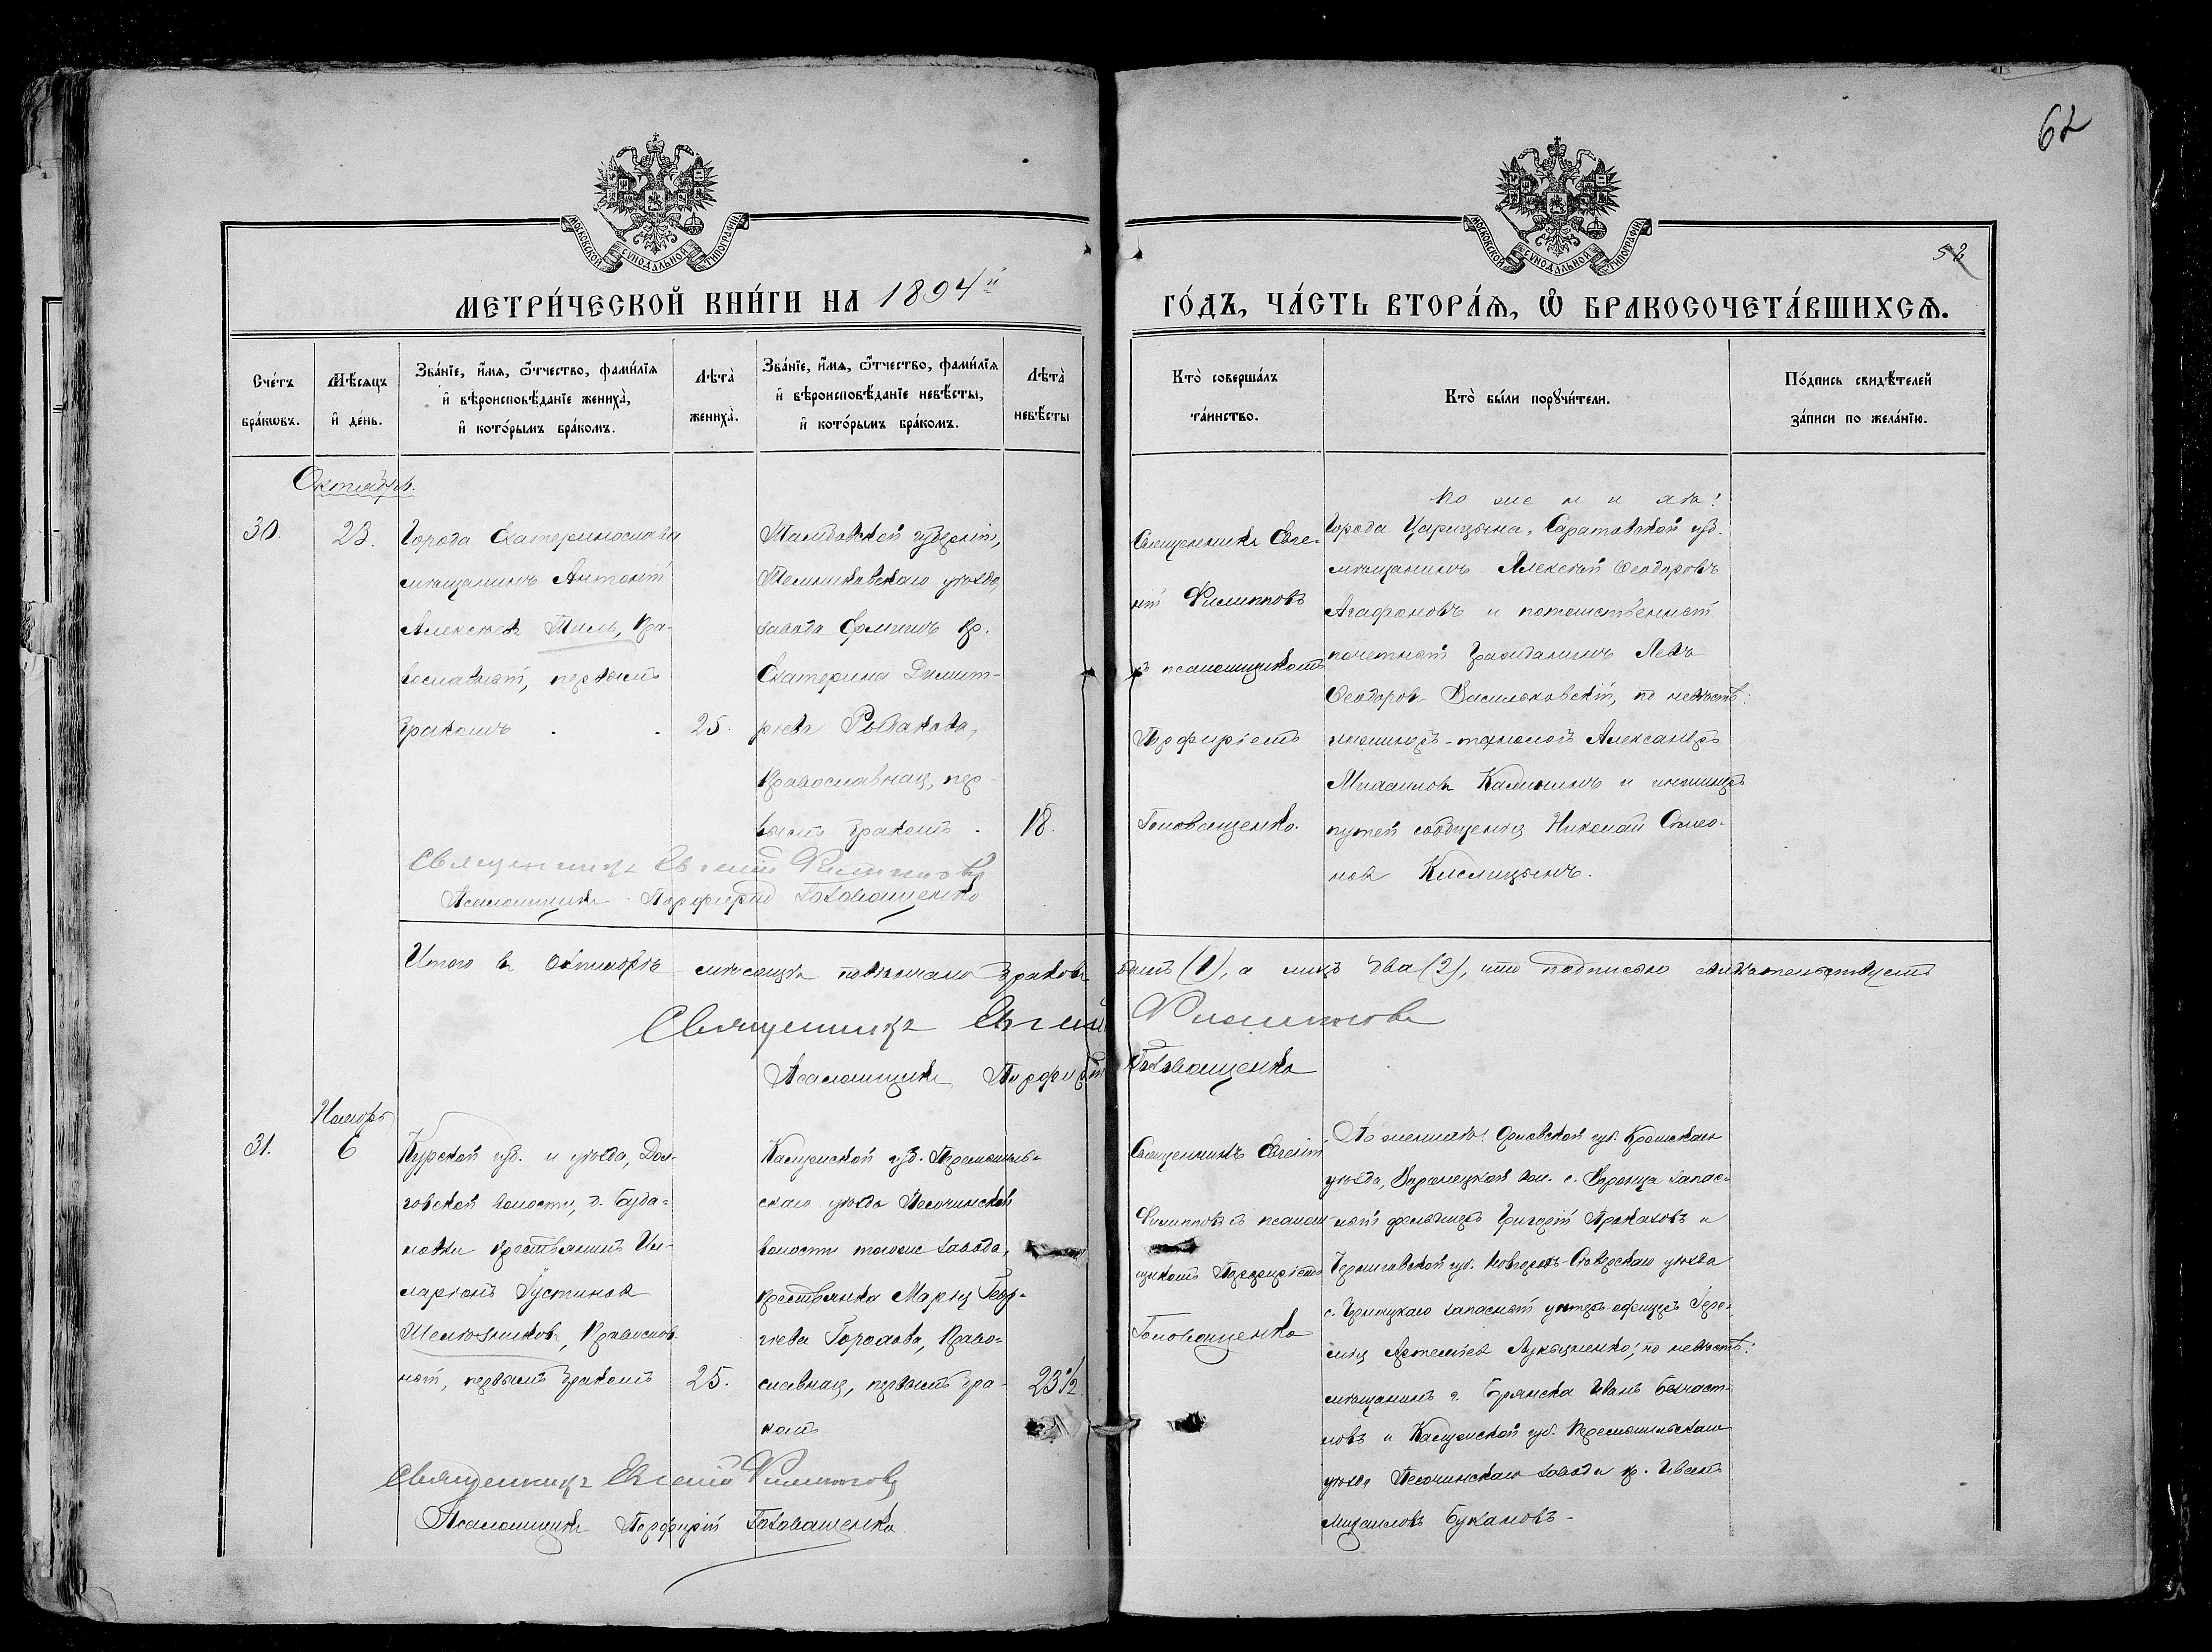 62
МОСКОВСКОЙ СѴНОДАЛЬНОЙ ТИПОГРАФІИ
МОСКОВСКОЙ СѴНОДАЛЬНОЙ ТИПОГРАФІИ
56
МЕТРИ́ЧЕСКОЙ КНИ́ГИ НА 1894й ГО́ДЪ, ЧА́СТЬ ВТОРА́Ѧ, Ѽ БРАКОСОЧЕТА́ВШИХСѦ.
Сче́тъ
бра́кѡвъ.
Мѣ́сяцъ
и҆ де́нь.
Зва́нїе, и҆́мѧ, ѻ҆́тчество, фами́лїѧ
и҆ вѣроисповѣ́данїе жениха̀,
и҆ кото́рымъ бра́комъ.
Лѣта̀
жениха̀.
Зва́нїе, и҆́мѧ, ѻ҆́тчество, фами́лїѧ
и҆ вѣроисповѣ́данїе невѣ́сты,
и҆ кото́рымъ бра́комъ.
Лѣта̀
невѣ́сты
Кто̀ соверша́лъ
та́инство.
Кто̀ бы́ли порꙋчи́тели.
По́дпись свидѣ́телей
за́писи по жела́нїю.
Октябрь.
30.
23.
Города Екатеринослава
мѣщанинъ Антоній
Алексѣевъ Тиль, Пра-
вославный, первымъ
бракомъ
25.
губерніи,
уѣзда,
завода кр.
Екатерина Димит-
рієва Рыбакова,
Православная, пер-
вымъ бракомъ
18.
Священникъ Евге-
ній Филипповъ
съ псаломщикомъ
Порфиріемъ
Головащенко.
По женихѣ:
Города Царицына, Саратовской губ.
мѣщанинъ Алексѣй Ѳеодоровъ
Агафоновъ и потомственный
почетный гражданинъ Левъ
Ѳеодоровъ Васильковскій, по невѣстѣ:
инженеръ-технологъ Александръ
Михаиловъ Калининъ и инженеръ
путей сообщенія Николай Симео-
новъ Кислицынъ.
Священникъ Евгеній Филипповъ
Псаломщикъ Порфирій Головащенко
Итого въ Октябрѣ мѣсяцѣ повѣнчано браковъ одинъ (1), а лицъ два (2), что подписью свидѣтельствуемъ
Священникъ Евгеній Филипповъ
Псаломщикъ Порфирій Головащенко
Ноябрь
31.
6
Курской губ. и уѣзда, Дол-
говской волости, д. Буда-
новки крестьянинъ Ил-
ларіонъ Іустиновъ
Шелюзниковъ, Православ-
ный, первымъ бракомъ
25.
Калужской губ. Перемышль-
скаго уѣзда Песочинской
волости того же завода,
крестьянка Марія Геор-
гіева Горохова, Право-
славная, первымъ бра-
комъ
23½.
Священникъ Евгеній
Филипповъ съ псалом-
щикомъ Порфиріемъ
Головащенко
По женихѣ: Орловской губ. Кромскаго
уѣзда, Воронецкой вол. с. Воронца запас-
ный фельдшеръ Григорій и
Черниговской губ. Новгородъ-Сѣверскаго уѣзда
с. запасный унтеръ-офицеръ Іере-
мія Артеміевъ Лукашенко; по невѣстѣ:
мѣщанинъ г. Брянска Иванъ Безчаст-
новъ и Калужской губ. Перемышльскаго
уѣзда Песочинскаго завода кр. Иванъ
Михаиловъ Букановъ.
Священникъ Евгеній Филипповъ
Псаломщикъ Порфирій Головащенко